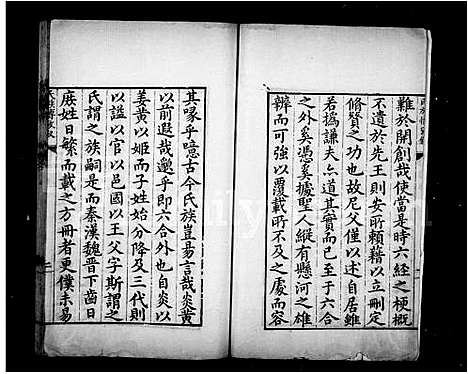 難於開創哉使當是時六經之梗概
不遺於先王則安所賴藉以立刪定
脩贊之功也故尼父僅以述自居雖
若撝謙夫亦道其實而已至于六合
之外奚憑奚據聖人縱有懸河之雄
辨而可強以覆載所不及之處而容
其喙乎噫古今氏族豈易言哉炎黃
以前遐哉邈乎即六合外也自炎以
姜黃以姬而子姓始分降及三代則
以謚以官以邑國以王父字斯謂之
氏謂之族嗣是而秦漢魏晉下齒日
庶姓日繁而載之方冊者更僕未易